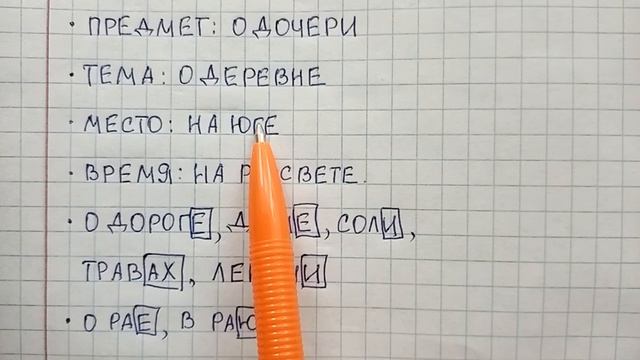 · ПРЕДМЕТ: О ДОЧЕРИ
· ТЕМА: О ДЕРЕВНЕ
· МЕСТО: НА ЮГЕ
· ВРЕМЯ: НА РАССВЕТЕ.
· О ДОРОГЕ, СОЛИ,
ТРАВАХ,
· О РАЕ, В РАЮ